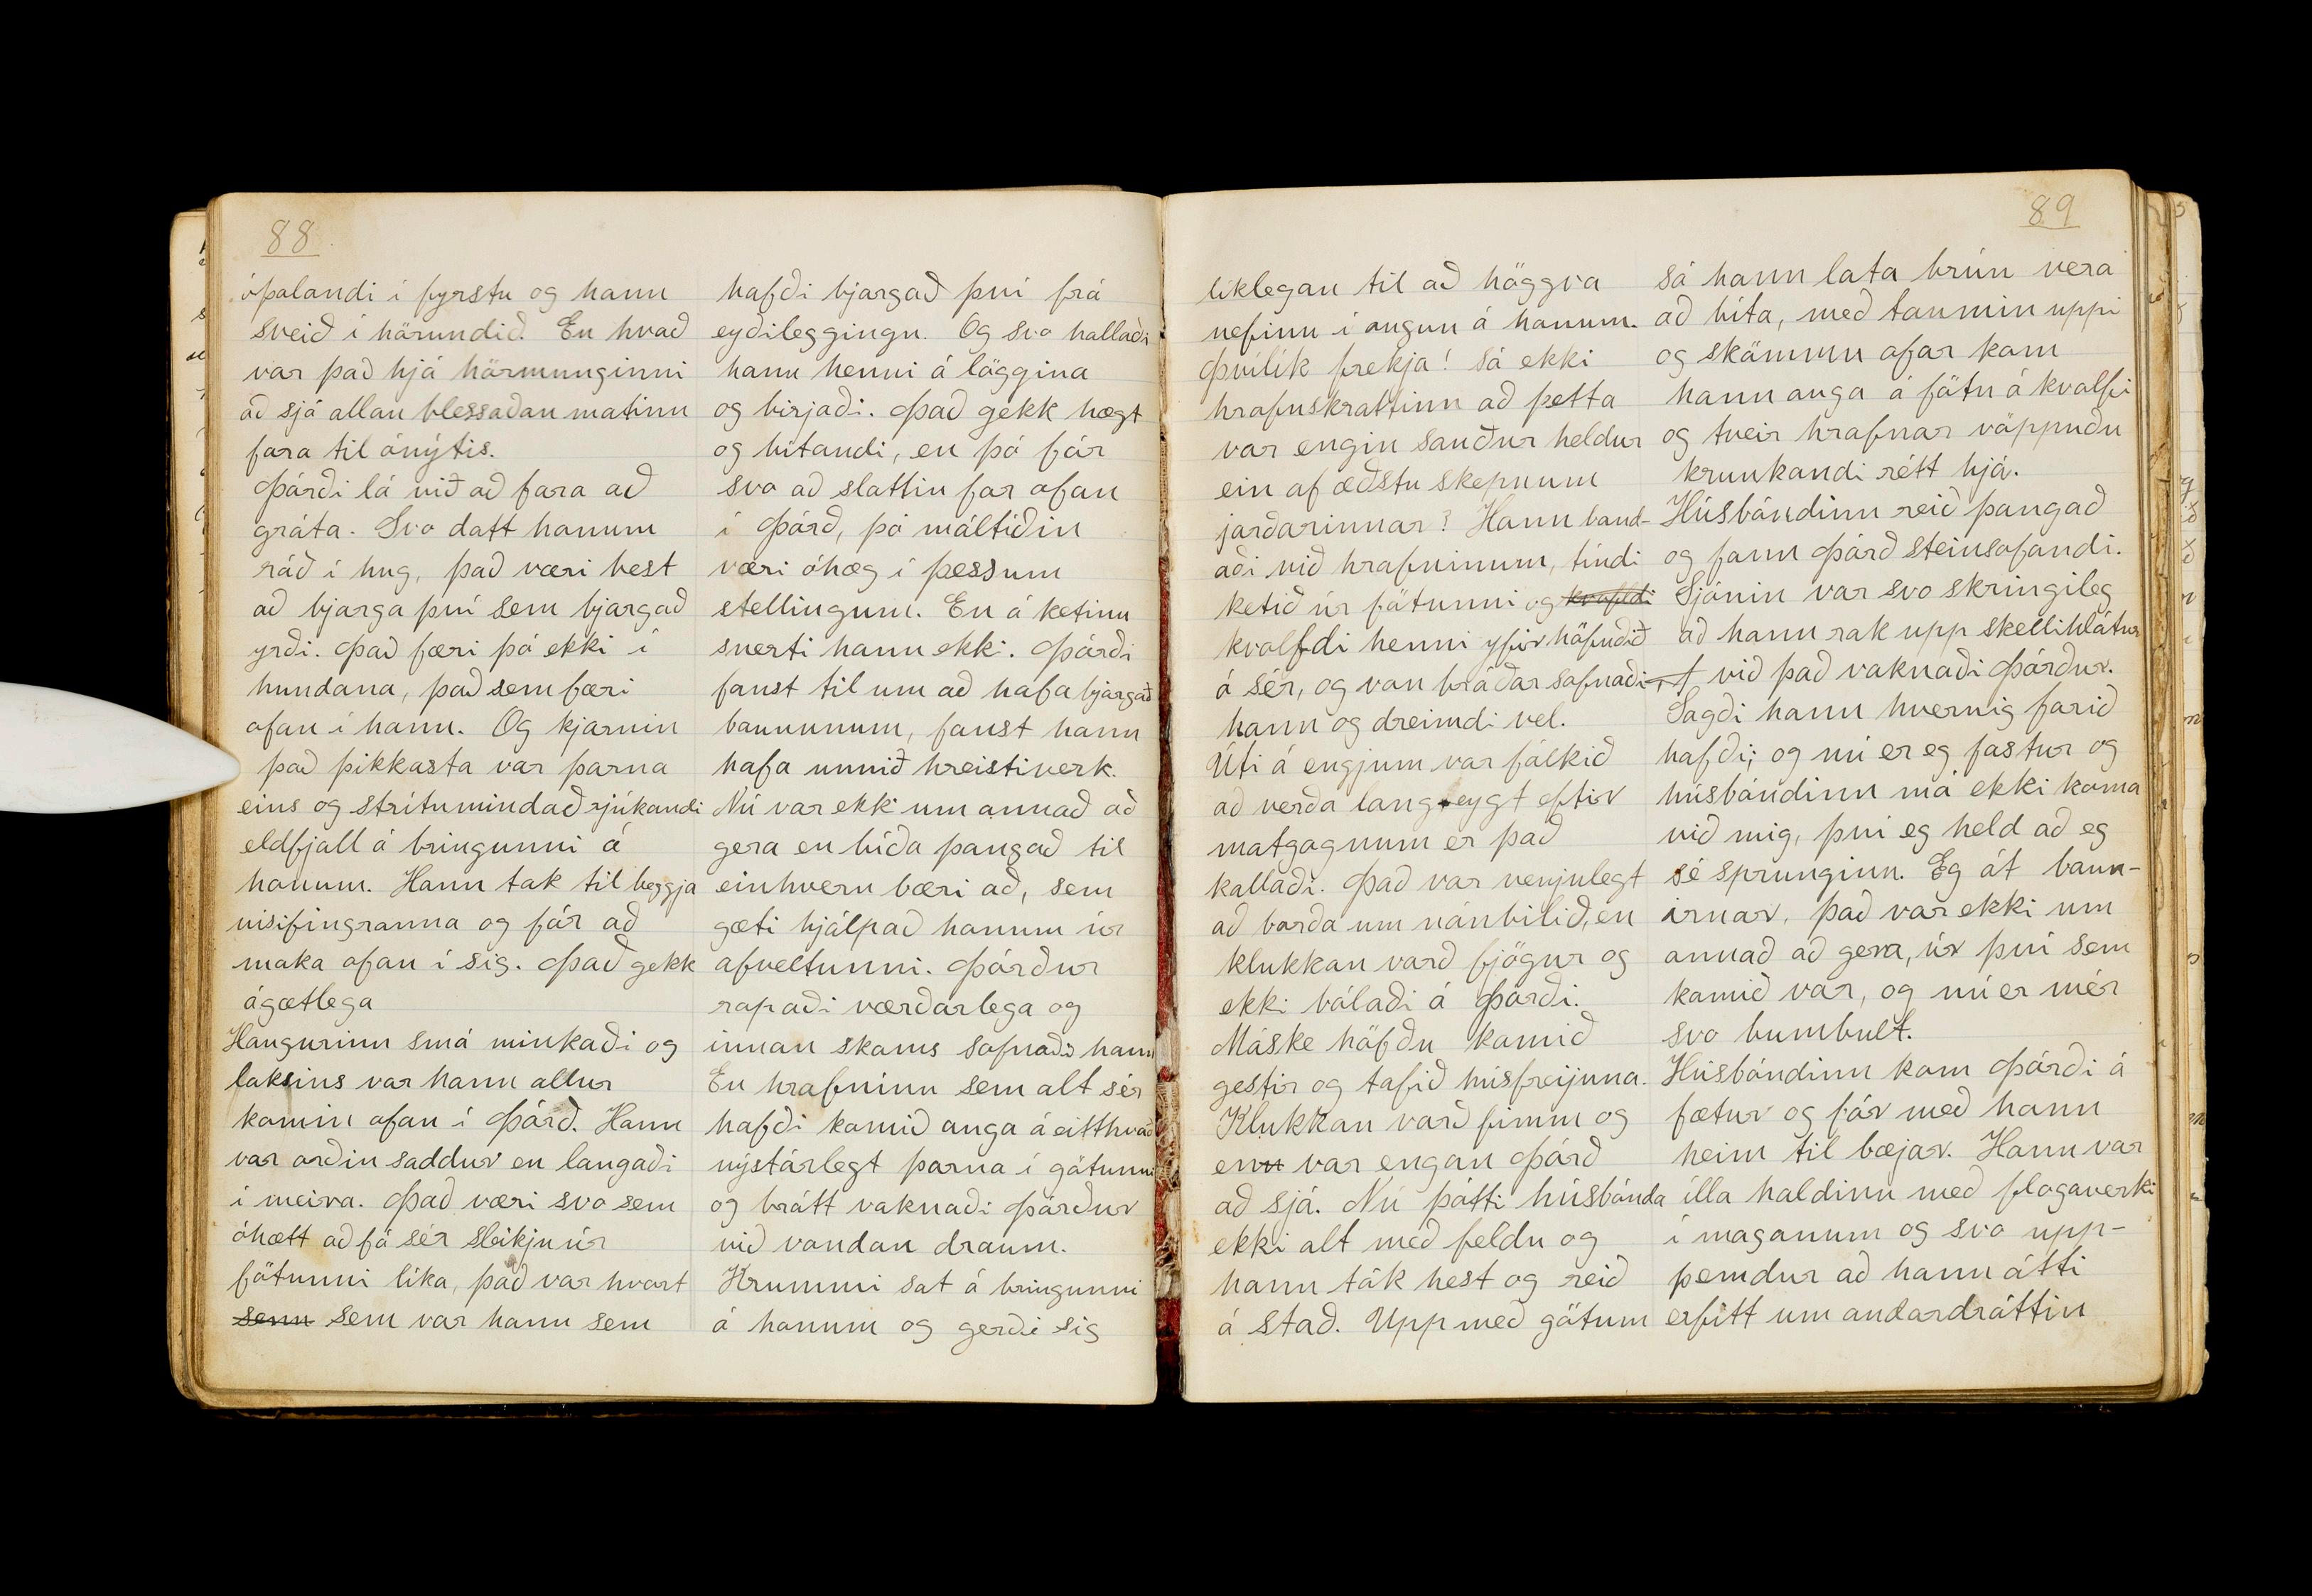 88
óþolandi í fyrstu og hann
sveið í hörundið. En hvað
var það hjá hörmunginni
að sjá allan blessaðan matinn
fara til ónýtis.
Þórði lá við að fara að
gráta. Svo datt honum
ráð í hug, það væri best
að bjarga því sem bjargað
yrði. Það færi þó ekki í
hundana, það sem færi
ofan í hann. Og kjarnin
það þikkasta var þarna
eins og strítumindað rjúkandi
eldfjall á bringunni á
honum. Hann tok til beggja
vísifingranna og fór að
moka ofan í sig. Það gekk
ágætlega
Haugurinn smá minkaði og
loksins var hann allur
komin ofan í Þórð. Hann
var orðin saddur en langaði
í meira. Það væri svo sem
óhætt að fá sér sleikju úr
fötunni líka, það var hvort
senn sem var hann sem
hafði bjargað því frá
eyðileggingu. Og svo hallaði
hann henni á löggina
og birjaði. Það gekk hægt
og bítandi, en þó fór
svo að slattin for ofan
í Þórð, þó máltíðin
væri óhæg í þessum
stellingum. En á ketinu
snerti hann ekki. Þórði
fanst til um að hafa bjargað
baununum, fanst hann
hafa unnið hreistiverk.
Nú var ekki um annað að
gera en bíða þangað til
einhvern bæri að, sem
gæti hjálpað honum úr
afveltunni. Þórður
ropaði værðarlega og
innan skams sofnaði hann
En hrafninn sem alt sér
hafði komið auga á eitthvað
nýstárlegt þarna í götunni
og brátt vaknaði Þórður
við vondan draum.
Krummi sat á bringunni
á honum og gerði sig
89
líklegan til að höggva
nefinu í augun á honum.
Þvílík frekja! Sá ekki
hrafnskrattinn að þetta
var engin sauður heldur
ein af æðstu skepnum
jarðarinnar? Hann band-
aði við hrafninum, tíndi
ketið úr fötunni og kvofldi
kvolfdi henni yfir höfuðið
á sér, og von bráðar sofnaði
hann og dreimdi vel.
Úti á engjum var fólkið
að verða langeygt eftir
matgognum er það
kallaði. Það var venjulegt
að borða um nónbilið, en
klukkan varð fjögur og
ekki bólaði á Þórði.
Máske höfðu komið
gestir og tafið húsfreijuna.
Klukkan varð fimm og
enn var engan Þórð
að sjá. Nú þótti húsbónda
ekki alt með feldu og
hann tók hest og reið
á stað. Upp með götum
sá hann lata brún vera
að bíta, með taumin uppi
og skömmu ofar kom
hann auga á fötu á kvolfi
og tveir hrafnar vöppuðu
krunkandi rétt hjá.
Húsbóndinn reið þangað
og fann Þórð steinsofandi.
Sjónin var svo skringileg
að hann rak upp skellihlátur
við það vaknaði Þórður.
Sagði hann hvernig farið
hafði; og nú er eg fastur og
húsbóndinn má ekki koma
við mig, því eg held að eg
sé sprunginn. Eg át baun-
irnar, það var ekki um
annað að gera, úr því sem
komið var, og nú er mér
svo bumbult.
Húsbóndinn kom Þórði á
fætur og fór með hann
heim til bæjar. Hann var
illa haldinn með flogaverki
í maganum og svo upp-
þemdur að hann átti
erfitt um andardráttin